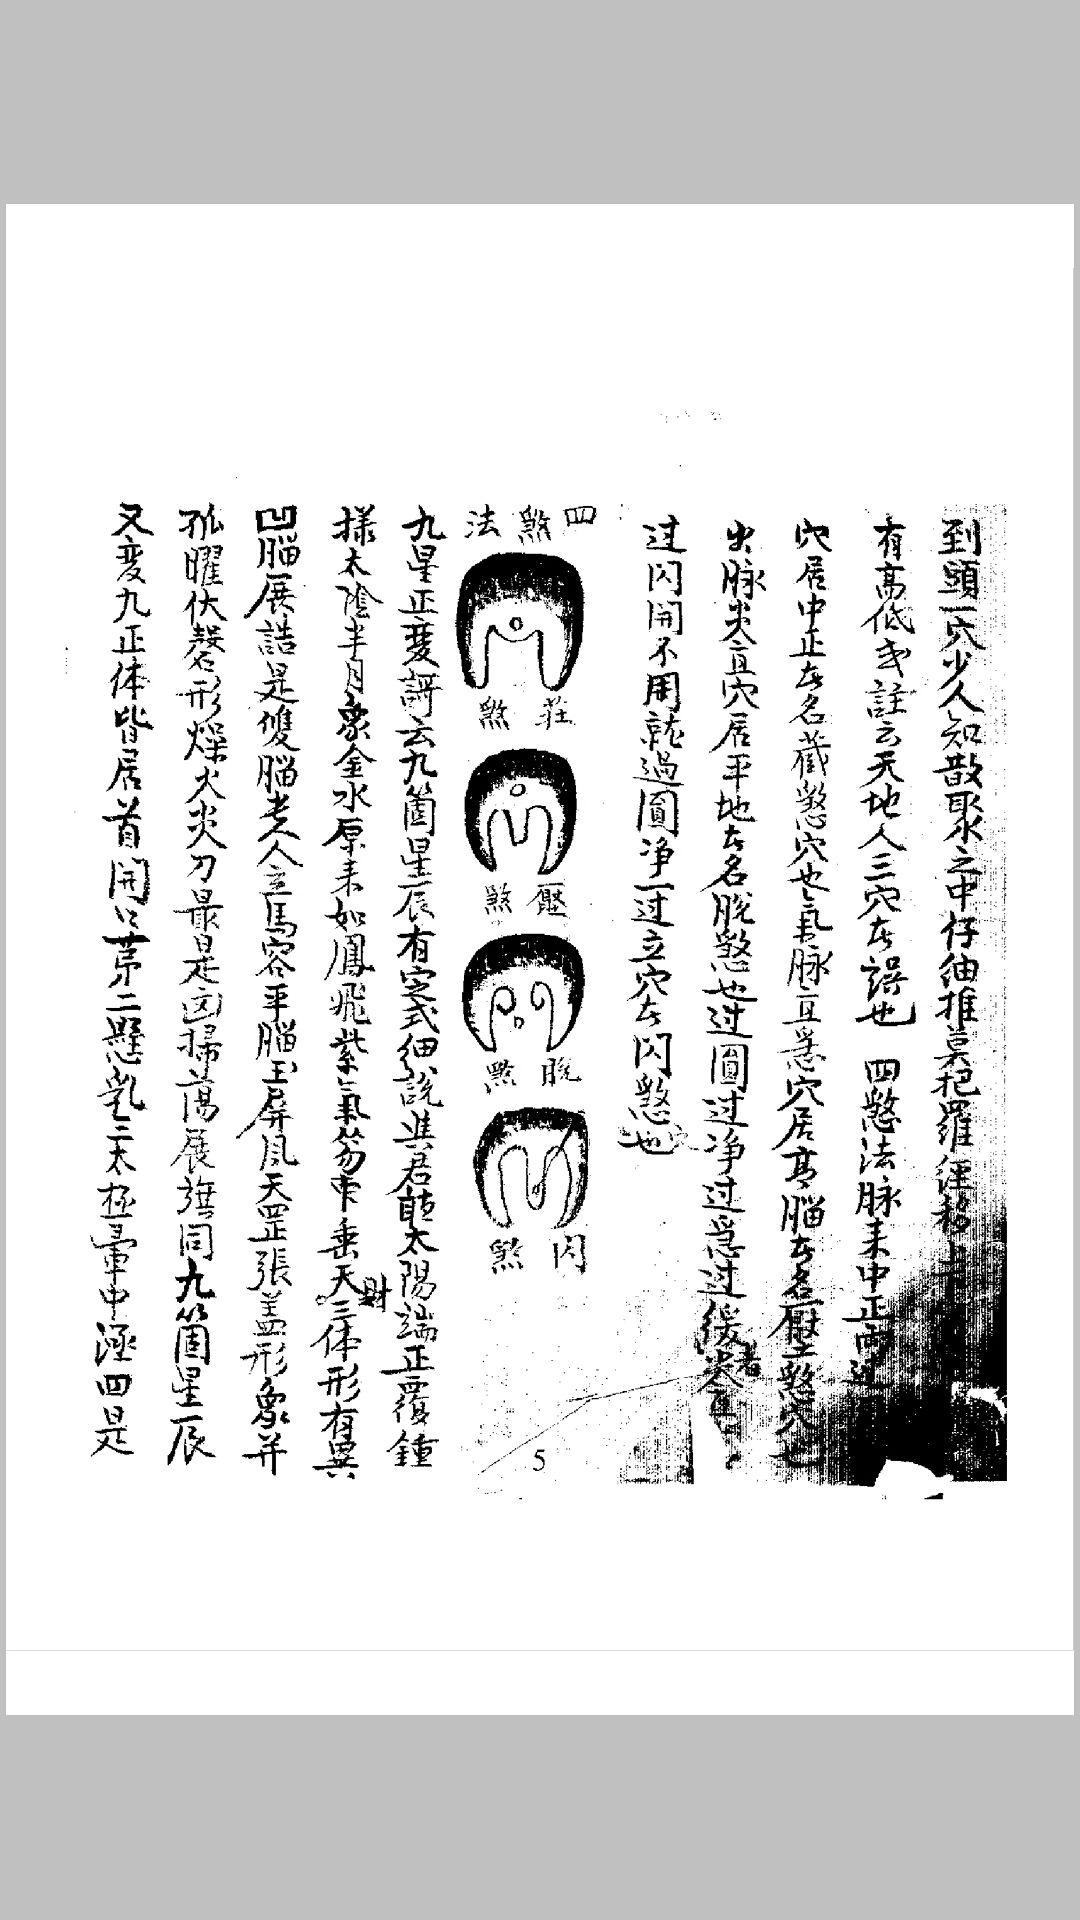 到頭一穴少人知散聚之中仔細推莫把羅經移上下
有高低或註云天地人三穴者誤也 四煞法脉来中正而
穴居中正者名藏煞穴也氣脉直急穴居高腦者名壓煞穴也
出脉尖直穴居平地者名脫煞也过圓过净过急过緩者尖直
过閃開不用就過圓净一过立穴者閃煞也
四煞法
煞 莊
煞 壓
煞 脫
煞 閃
九星正変謌云九箇星辰有定式細説與君聼太陽端正覆鍾
樣太陰半月象金水原来如鳳飛紫氣笏朿垂天財三体形有異
凹腦展誥是雙腦老人立馬容平腦玉屏風天罡張盖形象并
孤曜伏磬形燥火炎刀最是凶掃蕩展旗同九箇星辰
又変九正体皆居首開口苐二懸乳三太極暈中涵四是
5